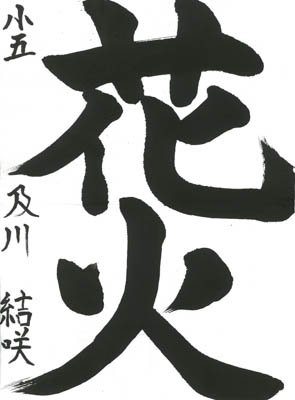 花火
小五 及川 結咲